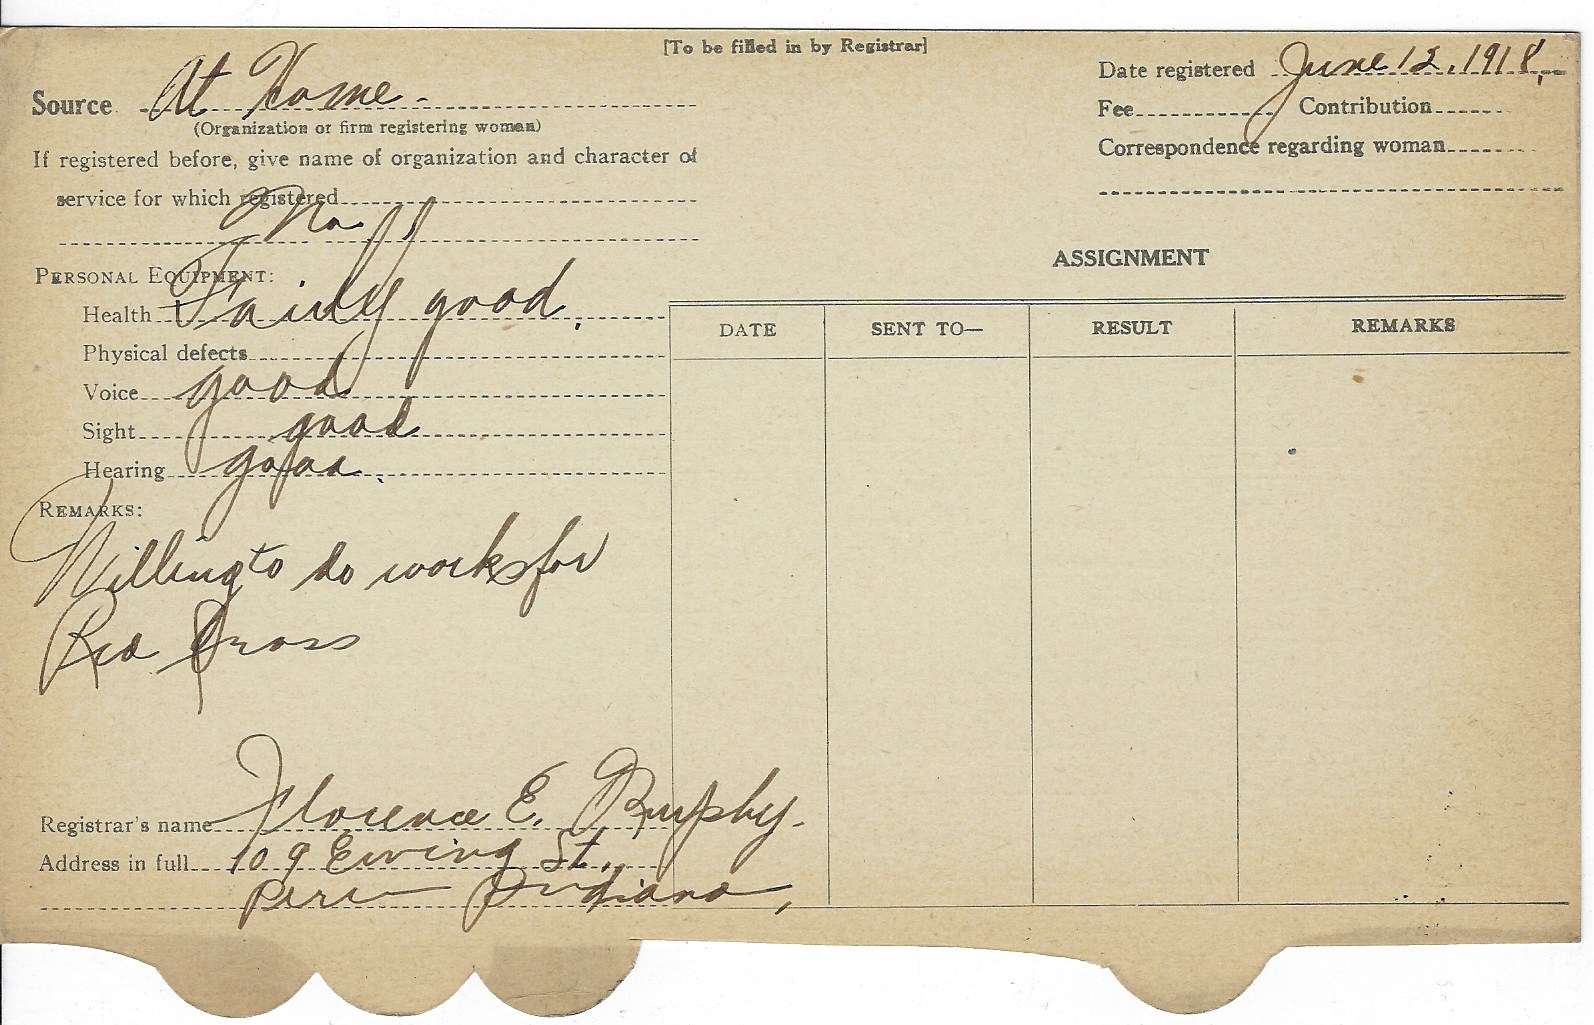 [To be filled in by Registrar]
Source At Home -
(Organization or firm registering woman)
If registered before, give name of organization and character of
service for which registered
No
Date registered June 12, 1918,
Fee Contribution
Correspondence regarding woman
PERSONAL EQUIPMENT:
Health Fairly good.
Physical defects
Voice good
Sight good
Hearing good
REMARKS:
Willing to do works for
Red Cross
ASSIGNMENT
DATE SENT TO— RESULT REMARKS
Registrar's name Florence E.
Address in full 109 Ewing St.,
Peru Indiana,